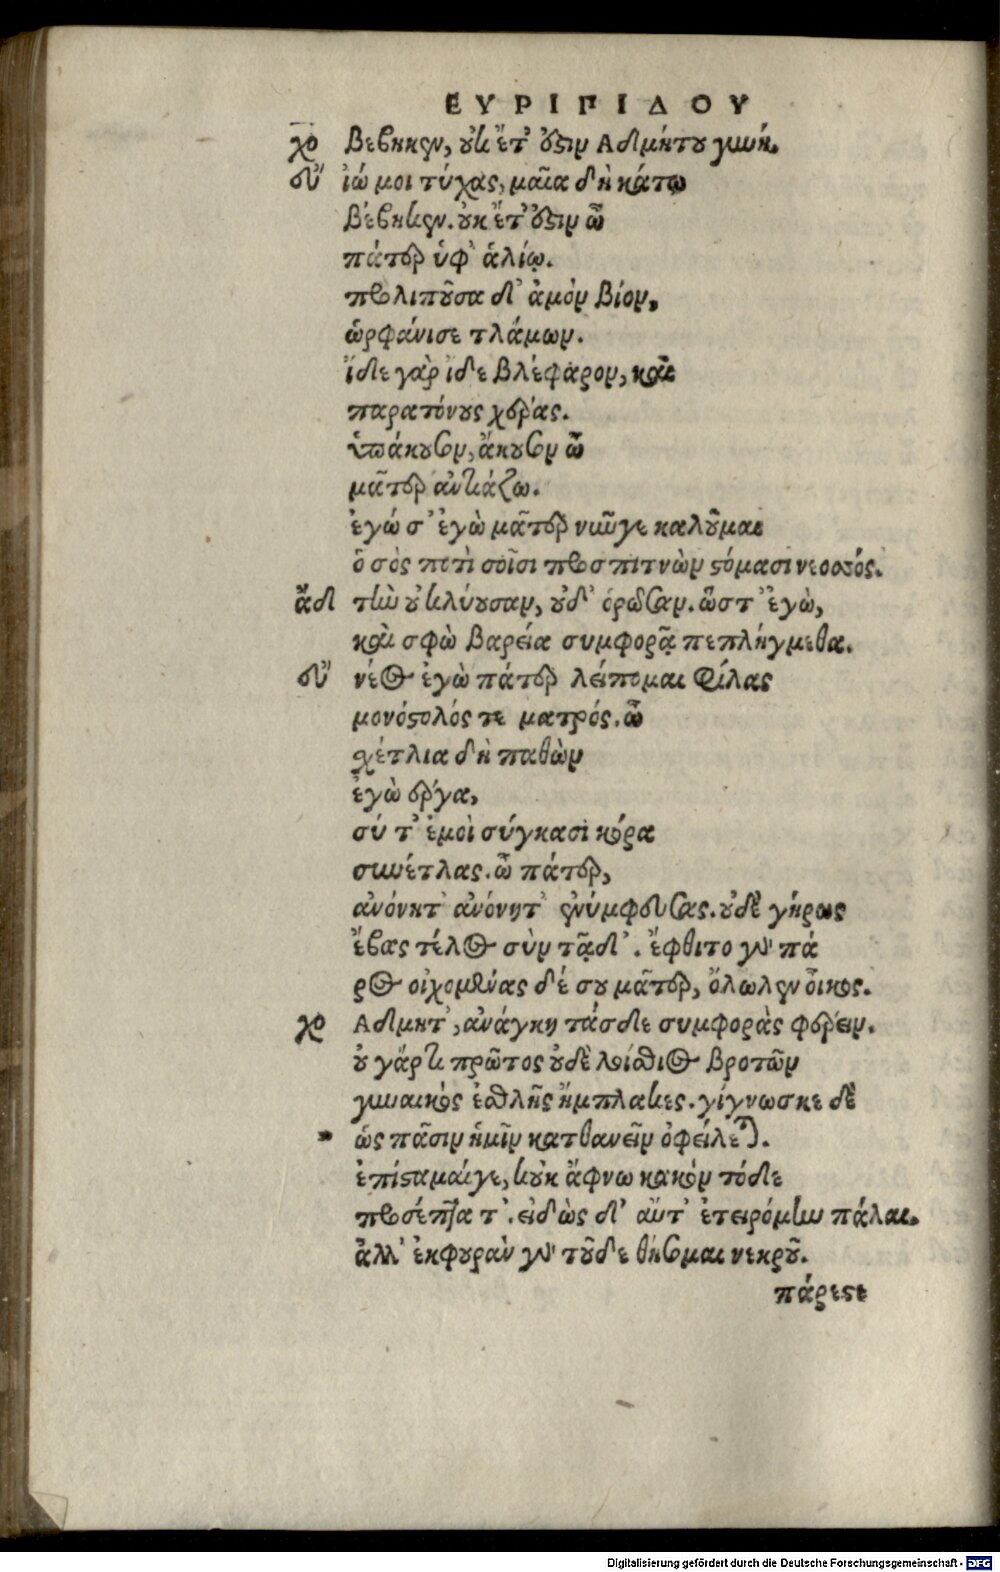 ΕΥΡΙΠΙΔΟΥ
χο βέβηκεν, οὐκ ἔτ' ἔστιν Ἀδμήτου γυνή.
ευ ἰώ μοι τύχας, μαῖα δὴ κάτω
βέβηκεν. οὐκ ἔτ' ἔστιν ὦ
πάτερ ὑφ' ἁλίῳ.
προλιποῦσα δ' ἀμὸν βίον,
ὠρφάνισε τλάμων.
ἴδε γὰρ ἴδε βλέφαρον, καὶ
παρατόνους χέρας.
ὑπάκουσον, ἄκουσον ὦ
μᾶτερ ἀντιάζω.
ἐγώ σ' ἐγὼ μᾶτερ νῦν γε καλοῦμαι
ὁ σὸς ποτὶ σοῖσι προσπιτνὼν στόμασι νεοσσός.
ἄδ τὴν οὐ κλύουσαν, οὐδ' ὁρῶσαν. ὥστ' ἐγὼ,
καὶ σφὼ βαρεία συμφορᾷ πεπλήγμεθα.
ευ νέος ἐγὼ πάτερ λείπομαι φίλας
μονόστολός τε ματρός. ὦ
σχέτλια δὴ παθὼν
ἐγὼ ἔργα,
σύ τ' ἐμοὶ σύγκασι κόρα
συνέτλας. ὦ πάτερ,
ἀνόνητ' ἀνόνητ' ἐνύμφευσας. οὐδὲ γήρως
ἔβας τέλος σὺν τᾷδ'. ἔφθιτο γὰρ πά
ρος οἰχομένας δέ σου μᾶτερ, ὄλωλεν οἶκος.
χο Ἄδμητ', ἀνάγκη τάσδε συμφορὰς φέρειν.
οὐ γάρ τι πρῶτος οὐδὲ λοίσθιος βροτῶν
γυναικὸς ἐσθλῆς ἤμπλακες. γίγνωσκε δὲ
ὡς πᾶσιν ἡμῖν κατθανεῖν ὀφείλεται.
ἐπίσταμαί γε, κοὐκ ἄφνω κακὸν τόδε
προσέπτατ'. εἰδὼς δ' αὔτ' ἐτειρόμην πάλαι.
ἀλλ' ἐκφορὰν γὰρ τοῦδε θήσομαι νεκροῦ.
πάρεστε
Digitalisierung gefördert durch die Deutsche Forschungsgemeinschaft - DFG